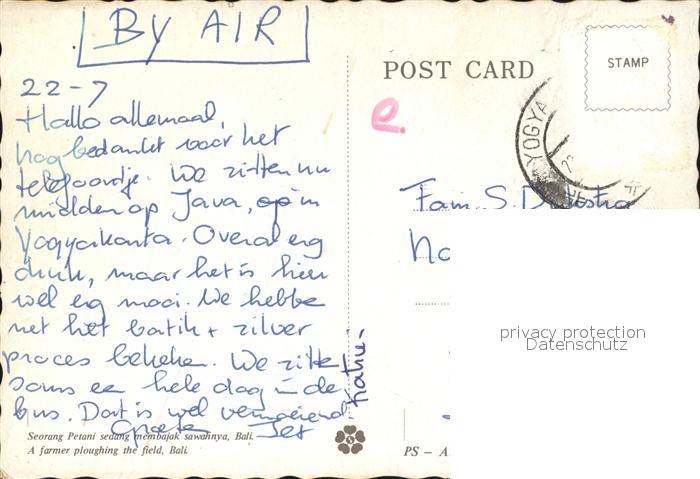 BY AIR
22-7
Hallo allemaal,
nog bedankt voor het
telefoontje. We zitten nu
midden op Java, op in
Yogyakarta. Overal erg
druk, maar het is hier
wel erg mooi. We hebbe
net het batik + zilver
proces bekeken. We zitte
soms een hele dag in de
bus. Dat is wel vermoeiend.
Groete Jet
Seorang Petani sedang membajak sawahnya, Bali.
A farmer ploughing the field, Bali.
POST CARD
STAMP
YOGYA
Fam. S. Dijkstra
No
privacy protection
Datenschutz
PS – A